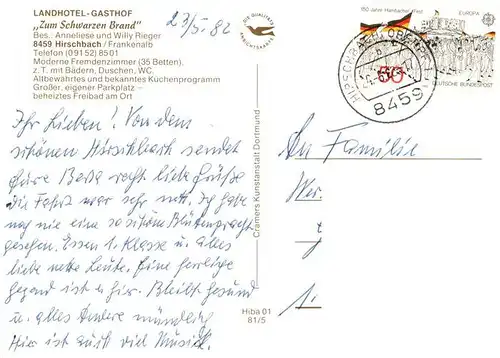 LANDHOTEL-GASTHOF
„Zum Schwarzen Brand"
Bes.: Anneliese und Willy Rieger
8459 Hirschbach / Frankenalb
Telefon (09152) 8501
Moderne Fremdenzimmer (35 Betten),
z. T. mit Bädern, Duschen, WC.
Altbewährtes und bekanntes Küchenprogramm
Großer, eigener Parkplatz –
beheiztes Freibad am Ort
23/5.82
DIE QUALITÄTS
ANSICHTSKARTE
Ihr Lieben! Von dem
schönen Hirschbach sendet
Eure Betta recht liebe Grüße
Die Fahrt war sehr nett. Ich habe
noch nie eine so schöne Blütenpracht
gesehen. Essen 1. Klasse u. alles
liebe nette Leute. Eine herrliche
Gegend ist es hier. Bleibt gesund
u. alles Andere mündlich
Hier ist auch viel Musik.
Cramers Kunstanstalt Dortmund
Hiba 01
81/5
150 Jahre Hambacher Fest
EUROPA
50
DEUTSCHE BUNDESPOST
8459
An Familie
Wer
1.